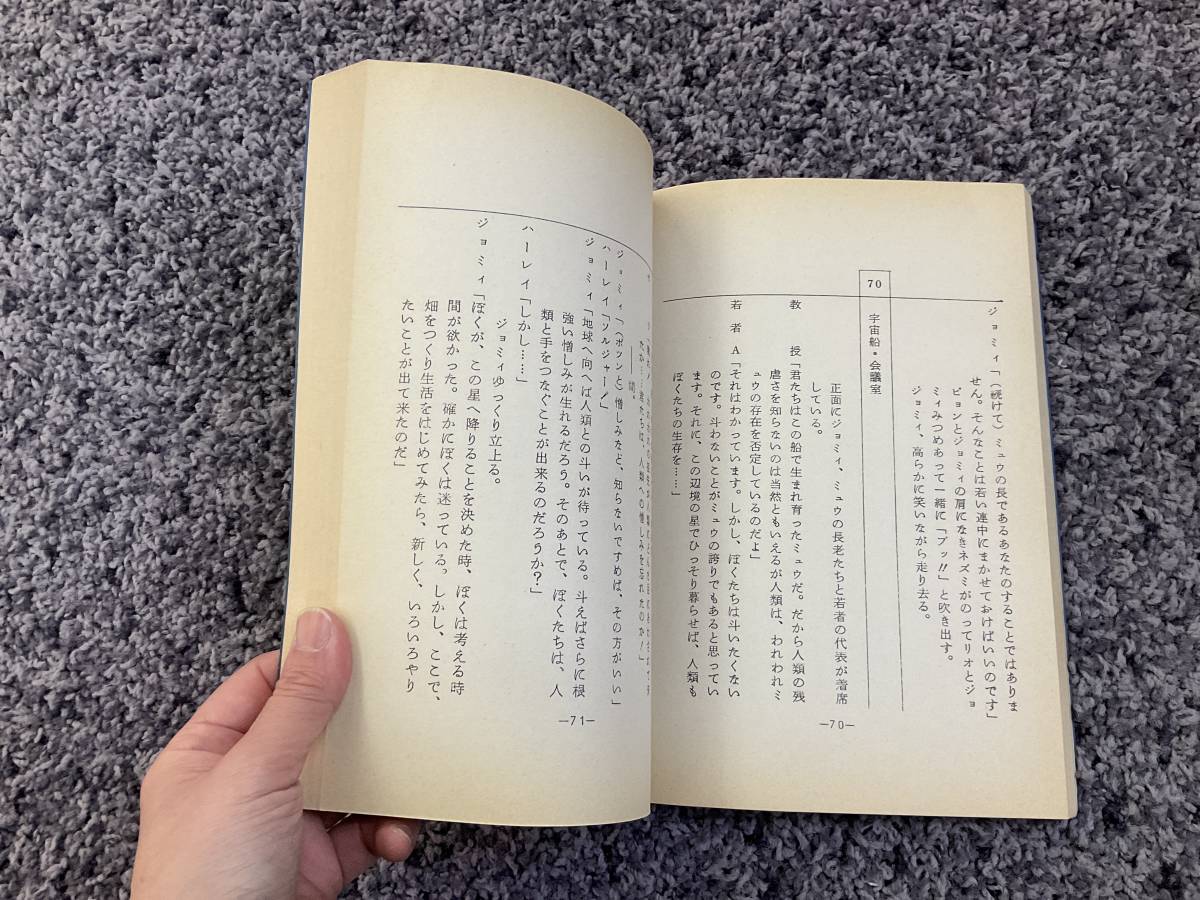 ジョミィ「（続けて）ミュウの長であるあなたのすることではありま
せん。そんなことは若い連中にまかせておけばいいのです」
ピョンとジョミィの肩になきネズミがのってリオとジョ
ミィみつめあって一緒に「プッ!!」と吹き出す。
ジョミィ、高らかに笑いながら走り去る。
70 宇宙船・会議室
正面にジョミィ、ミュウの長老たちと若者の代表が着席
している。
教　授「君たちはこの船で生まれ育ったミュウだ。だから人類の残
虐さを知らないのは当然ともいえるが人類は、われわれミ
ュウの存在を否定しているのだよ」
若者A「それはわかっています。しかし、ぼくたちは斗いたくない
のです。斗わないことがミュウの誇りでもあると思ってい
ます。それに、この辺境の星でひっそり暮らせば、人類も
ぼくたちの生存を……」
—70—
君たちは、人類への憎しみを忘れたのか！」
——間。
ジョミィ「（ポツンと）憎しみなど、知らないですめば、その方がいい」
ハーレイ「ソルジャー！」
ジョミィ「地球へ向へば人類との斗いが待っている。斗えばさらに根
強い憎しみが生れるだろう。そのあとで、ぼくたちは、人
類と手をつなぐことが出来るのだろうか？」
ハーレイ「しかし……」
ジョミィゆっくり立上る。
ジョミィ「ぼくが、この星へ降りることを決めた時、ぼくは考える時
間が欲かった。確かにぼくは迷っている。しかし、ここで、
畑をつくり生活をはじめてみたら、新しく、いろいろやり
たいことが出て来たのだ」
—71—